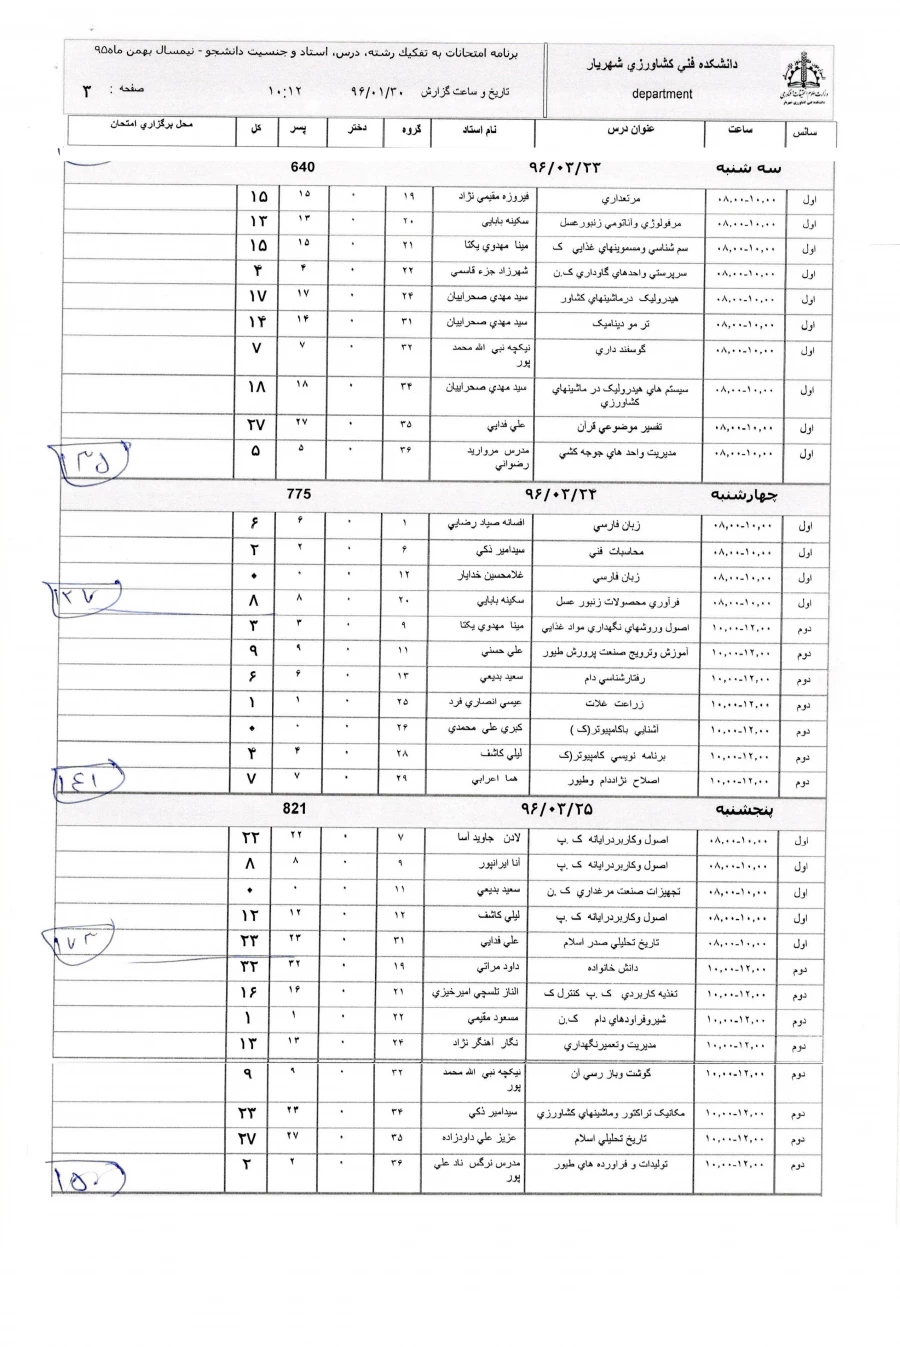 برنامه امتحانات به تفکیك رشته، درس، استاد و جنسیت دانشجو - نیمسال بهمن ماه۹۵
دانشکده فني کشاورزي شهریار
تاریخ و ساعت گزارش ۹۶/۰۱/۳۰ ۱۰:۱۲ صفحه : ۳
department
سانس ساعت عنوان درس نام استاد گروه دختر پسر کل محل برگزاري امتحان
سه شنبه ۹۶/۰۳/۲۳ 640
اول ۰۸,۰۰-۱۰,۰۰ مرتعداري فیروزه مقیمي نژاد ۱۹ ۰ ۱۵ ۱۵
اول ۰۸,۰۰-۱۰,۰۰ مرفولوژي وآناتومي زنبورعسل سکینه بابایی ۲۰ ۰ ۱۳ ۱۳
اول ۰۸,۰۰-۱۰,۰۰ سم شناسي ومسمویتهاي غذایي ک مینا مهدوي یکتا ۲۱ ۰ ۱۵ ۱۵
اول ۰۸,۰۰-۱۰,۰۰ سرپرستي واحدهاي گاوداري ک.ن شهرزاد جزء قاسمي ۲۲ ۰ ۴ ۴
اول ۰۸,۰۰-۱۰,۰۰ هیدرولیک درماشینهاي کشاور سید مهدي صحراییان ۲۴ ۰ ۱۷ ۱۷
اول ۰۸,۰۰-۱۰,۰۰ تر مو دینامیک سید مهدي صحراییان ۳۱ ۰ ۱۴ ۱۴
اول ۰۸,۰۰-۱۰,۰۰ گوسفند داري نیکچه نبي الله محمد ۳۲ ۰ ۷ ۷
پور
اول ۰۸,۰۰-۱۰,۰۰ سیستم هاي هیدرولیک در ماشینهاي سید مهدي صحراییان ۳۴ ۰ ۱۸ ۱۸
کشاورزي
اول ۰۸,۰۰-۱۰,۰۰ تفسیر موضوعي قرآن علي فدایي ۳۵ ۰ ۲۷ ۲۷
اول ۰۸,۰۰-۱۰,۰۰ مدیریت واحد هاي جوجه کشي مدرس مروارید ۳۶ ۰ ۵ ۵
رضواني
۱۳۵
چهارشنبه ۹۶/۰۳/۲۴ 775
اول ۰۸,۰۰-۱۰,۰۰ زبان فارسي افسانه صیاد رضایي ۱ ۰ ۶ ۶
اول ۰۸,۰۰-۱۰,۰۰ محاسبات فني سیدامیر ذکي ۶ ۰ ۲ ۲
اول ۰۸,۰۰-۱۰,۰۰ زبان فارسي غلامحسین خدایار ۱۲ ۰ ۰ ۰
اول ۰۸,۰۰-۱۰,۰۰ فرآوري محصولات زنبور عسل سکینه بابایي ۲۰ ۰ ۸ ۸
۱۲۷
دوم ۱۰,۰۰-۱۲,۰۰ اصول وروشهاي نگهداري مواد غذایي مینا مهدوي یکتا ۹ ۰ ۳ ۳
دوم ۱۰,۰۰-۱۲,۰۰ آموزش وترویج صنعت پرورش طیور علي حسني ۱۱ ۰ ۹ ۹
دوم ۱۰,۰۰-۱۲,۰۰ رفتارشناسي دام سعید بدیعي ۱۳ ۰ ۶ ۶
دوم ۱۰,۰۰-۱۲,۰۰ زراعت غلات عیسي انصاري فرد ۲۵ ۰ ۱ ۱
دوم ۱۰,۰۰-۱۲,۰۰ آشنایي باکامپیوتر(ک ) کبري علي محمدي ۲۶ ۰ ۰ ۰
دوم ۱۰,۰۰-۱۲,۰۰ برنامه نویسي کامپیوتر(ک لیلي کاشف ۲۸ ۰ ۴ ۴
دوم ۱۰,۰۰-۱۲,۰۰ اصلاح نژاددام وطیور هما اعرابي ۲۹ ۰ ۷ ۷
۱۴۱
پنجشنبه ۹۶/۰۳/۲۵ 821
اول ۰۸,۰۰-۱۰,۰۰ اصول وکاربردرایانه ک .پ لادن جاوید آسا ۷ ۰ ۲۲ ۲۲
اول ۰۸,۰۰-۱۰,۰۰ اصول وکاربردرایانه ک .پ آنا ایرانپور ۹ ۰ ۸ ۸
اول ۰۸,۰۰-۱۰,۰۰ تجهیزات صنعت مرغداري ک .ن سعید بدیعي ۱۱ ۰ ۰ ۰
اول ۰۸,۰۰-۱۰,۰۰ اصول وکاربردرایانه ک .پ لیلي کاشف ۱۲ ۰ ۱۲ ۱۲
اول ۰۸,۰۰-۱۰,۰۰ تاریخ تحلیلي صدر اسلام علي فدایي ۳۱ ۰ ۲۳ ۲۳
۱۷۳
دوم ۱۰,۰۰-۱۲,۰۰ دانش خانواده داود مراتي ۱۹ ۰ ۳۲ ۳۲
دوم ۱۰,۰۰-۱۲,۰۰ تغذیه کاربردي ک .پ کنترل ک الناز تلسچي امیرخیزي ۲۱ ۰ ۱۶ ۱۶
دوم ۱۰,۰۰-۱۲,۰۰ شیروفراودهاي دام ک.ن مسعود مقیمي ۲۲ ۰ ۱ ۱
دوم ۱۰,۰۰-۱۲,۰۰ مدیریت وتعمیرنگهداري نگار آهنگر نژاد ۲۴ ۰ ۱۳ ۱۳
دوم ۱۰,۰۰-۱۲,۰۰ گوشت وباز رسي آن نیکچه نبي الله محمد ۳۲ ۰ ۹ ۹
پور
دوم ۱۰,۰۰-۱۲,۰۰ مکانیک تراکتور وماشینهاي کشاورزي سیدامیر ذکي ۳۴ ۰ ۲۳ ۲۳
دوم ۱۰,۰۰-۱۲,۰۰ تاریخ تحلیلي اسلام عزیز علي داودزاده ۳۵ ۰ ۲۷ ۲۷
دوم ۱۰,۰۰-۱۲,۰۰ تولیدات و فراورده هاي طیور مدرس نرگس ناد علي ۳۶ ۰ ۲ ۲
پور
۱۵۰